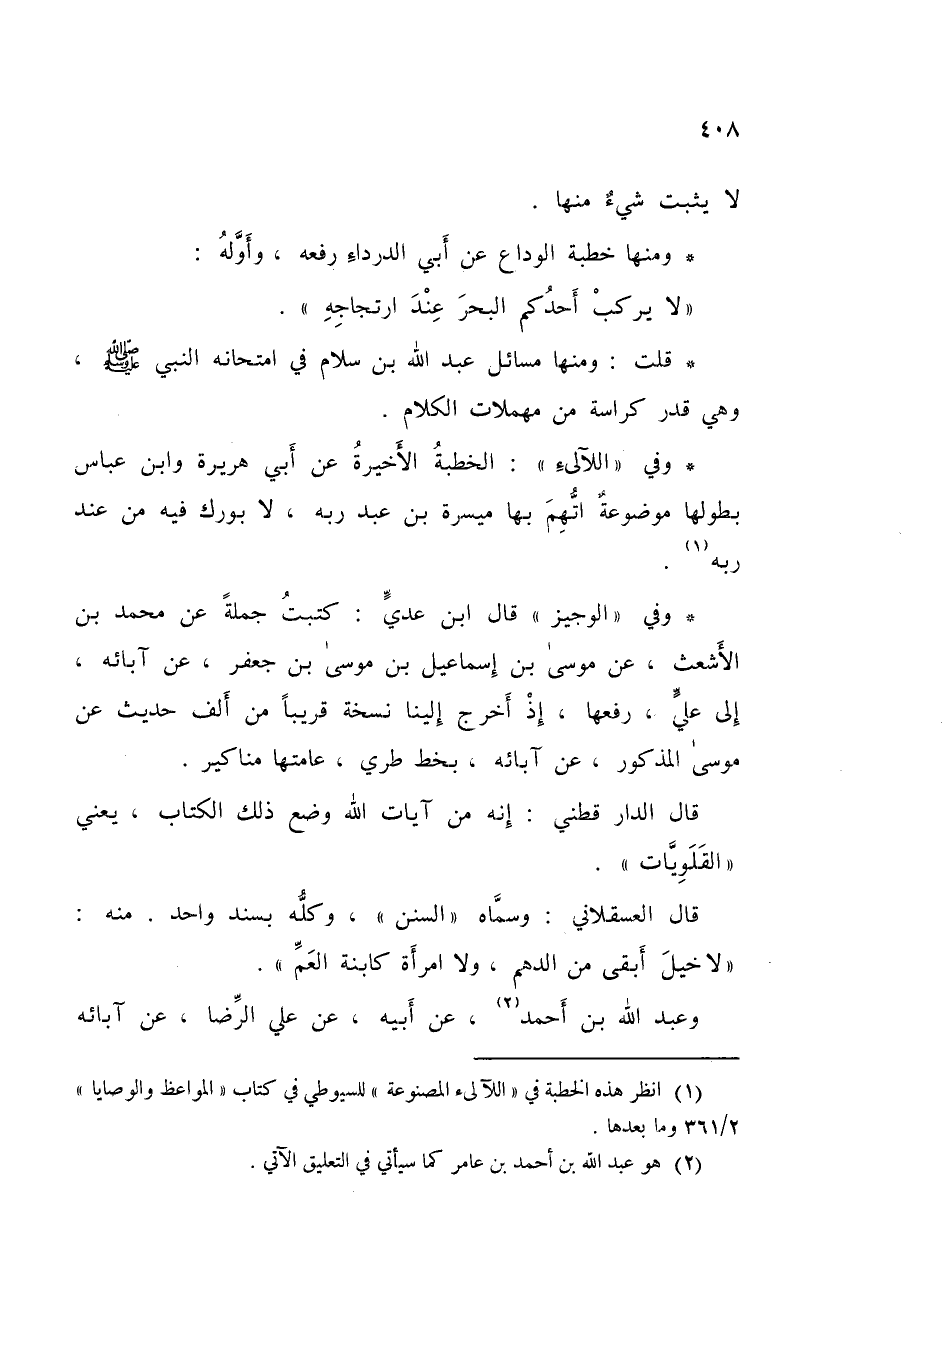 ٤٠٨
لا يثبت شيءٌ منها .
* ومنها خطبة الوداع عن أَبي الدرداءِ رفعه ، وأَوَّلهُ :
«لا يركبْ أَحدُكم البحرَ عِنْدَ ارتجاجِهِ » .
* قلت : ومنها مسائل عبد الله بن سلام في امتحانه النبي ﷺ ،
وهي قدر كراسة من مهملات الكلام .
* وفي «اللآلىء » : الخطبةُ الأَخيرةُ عن أَبي هريرة وابن عباس
بطولها موضوعةٌ اتُّهِمَ بها ميسرة بن عبد ربه ، لا بورك فيه من عند
ربه(١) .
* وفي «الوجيز » قال ابن عديٍّ : كتبتُ جملةً عن محمد بن
الأَشعث ، عن موسىٰ بن إسماعيل بن موسىٰ بن جعفر ، عن آبائه ،
إلى عليٍّ ، رفعها ، إذْ أَخرج إلينا نسخة قريباً من أَلف حديث عن
موسىٰ المذكور ، عن آبائه ، بخط طري ، عامتها مناكير .
قال الدار قطني : إنه من آيات الله وضع ذلك الكتاب ، يعني
«القَلَوِيَّات » .
قال العسقلاني : وسمَّاه «السنن » ، وكلُّه بسند واحد . منه :
«لا خيلَ أَبقى من الدهم ، ولا امرأَة كابنة العَمِّ » .
وعبد الله بن أَحمد(٢) ، عن أَبيه ، عن علي الرِّضا ، عن آبائه
(١) انظر هذه الخطبة في « اللآلىء المصنوعة » للسيوطي في كتاب « المواعظ والوصايا »
٣٦١/٢ وما بعدها .
(٢) هو عبد الله بن أحمد بن عامر كما سيأتي في التعليق الآتي .